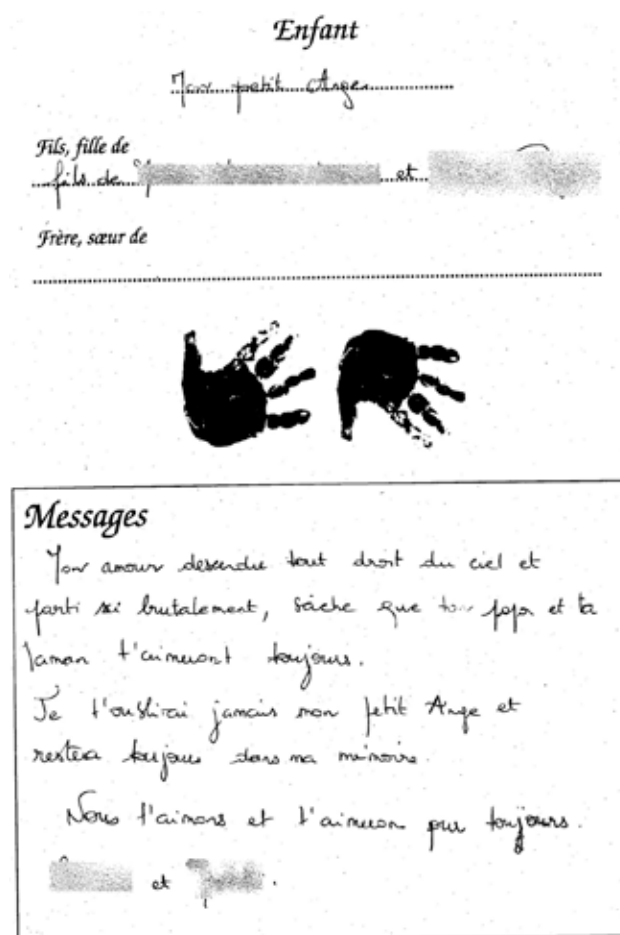 Enfant
Mon petit Ange
Fils, fille de
fils de et
Frère, sœur de
Messages
Mon amour descendu tout droit du ciel et
parti si brutalement, sache que ton papa et ta
maman t'aimeront toujours.
Je t'oublirai jamais mon petit Ange et
restera toujours dans ma mémoire
Nous t'aimons et t'aimeron pour toujours.
et .